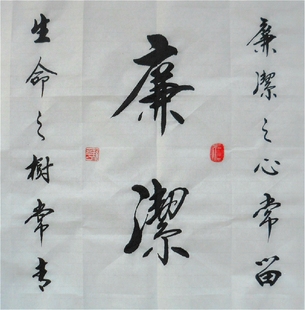 廉潔之心常留
廉潔
生命之樹常青